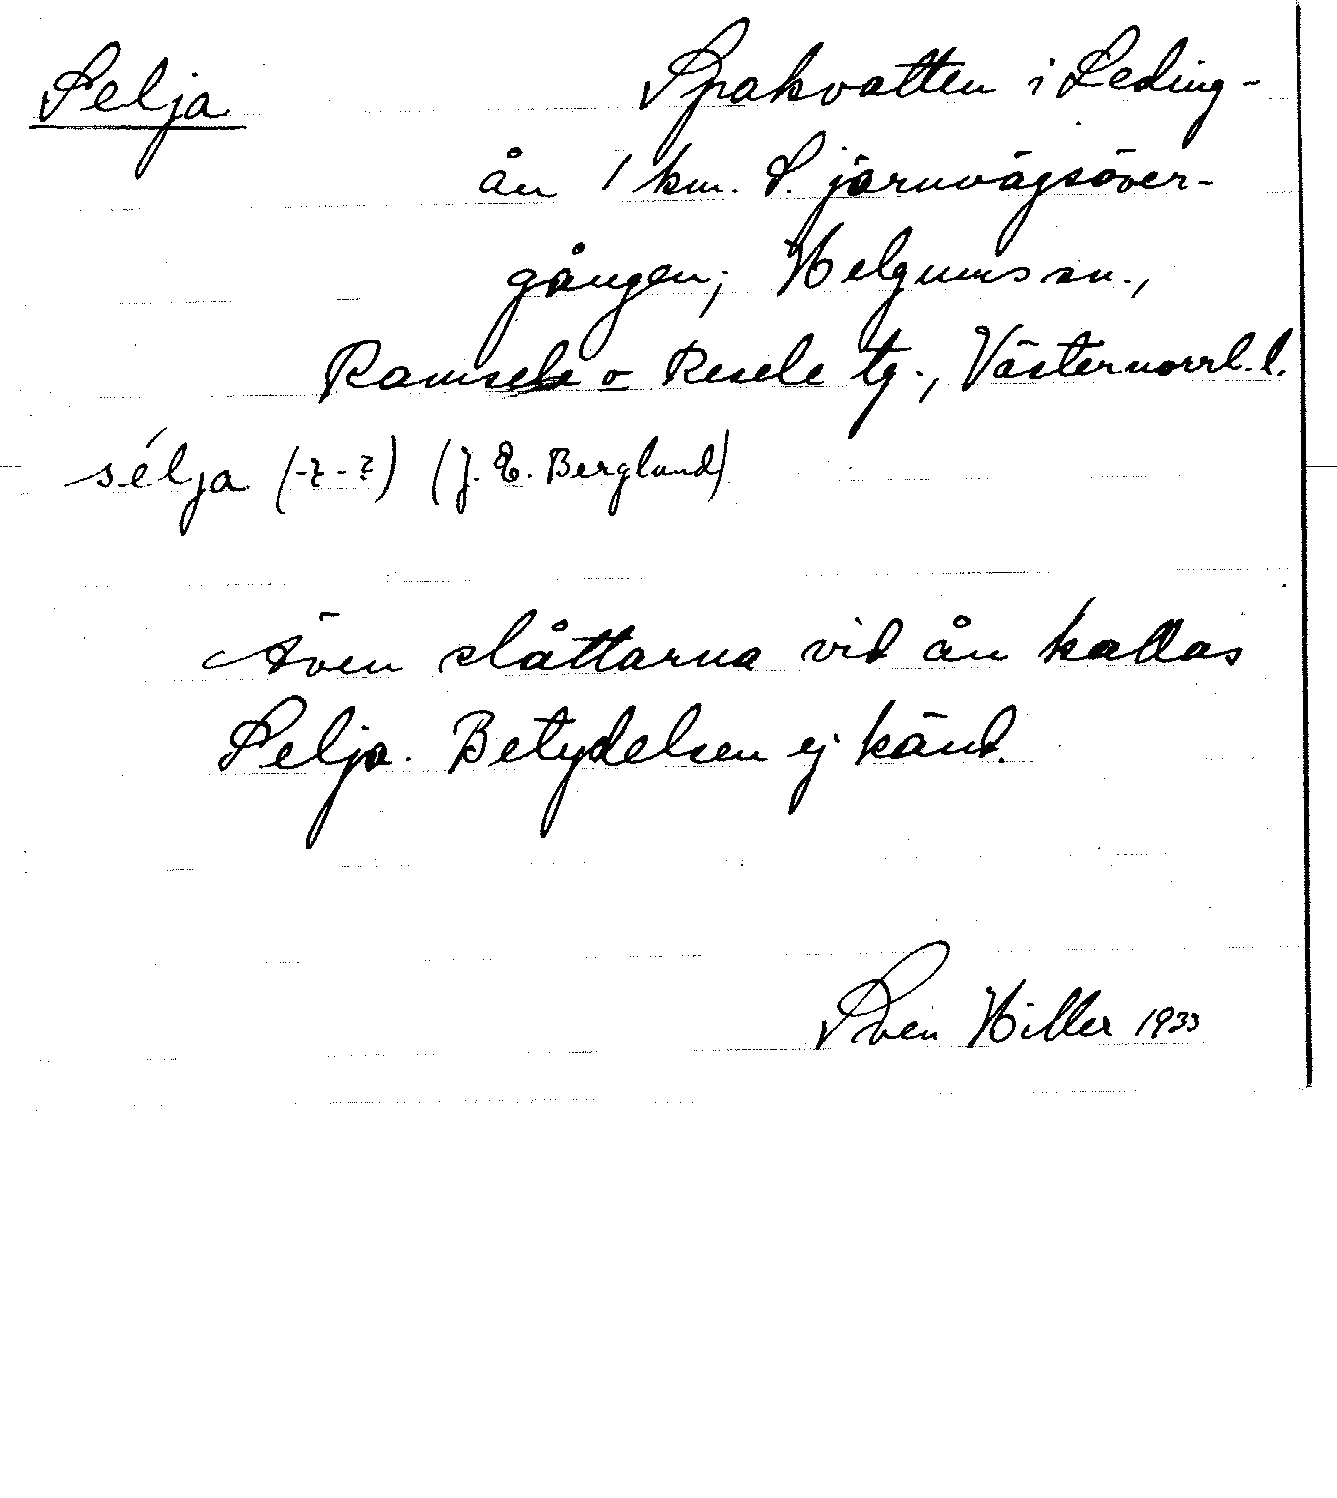 Selja
Spakvatten i Leding-
ån 1 km. S. järnvägsöver-
gången; Helgums sn.,
Ramsele o Resele tg., Västernorrl. l.
sélja (-ꝛ-ꝛ) (J. E. Berglund)
Även slåttarna vid ån kallas
Selja. Betydelsen ej känd.
Sven Hiller 1933